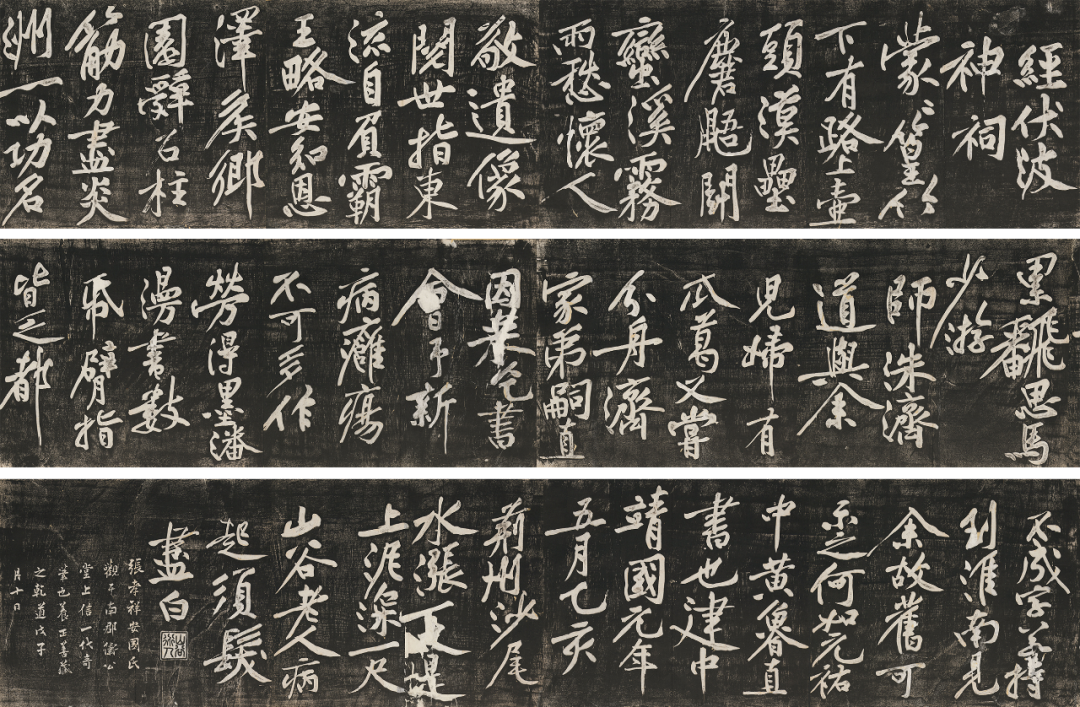 經伏波
神祠
蒙〻篁竹
下有路上壺
頭漢壘
麏鼯鬭
蠻溪霧
雨愁懷人
敬遺像
閱世指東
流自負霸
王略安知恩
澤侯鄉
園辭石柱
筋力盡炎
洲一以功名
累飜思馬
少游
師洙濟
道與余
兒婦有
瓜葛又嘗
分舟濟
家弟嗣直
因來乞書
會予新
病癰瘍
不可多作
勞得墨瀋
漫書數
帋臂指
皆乏都
不成字若持
到淮南見
余故舊可
示之何如元祐
中黃魯直
書也建中
靖國元年
五月乙亥
荊州沙尾
水漲一丈堤
上泥深一尺
山谷老人病
起須髮
盡白
張孝祥安國氏
觀于南郡衛公
堂上信一代奇
筆也養正善藏
之乾道戊子
月十日